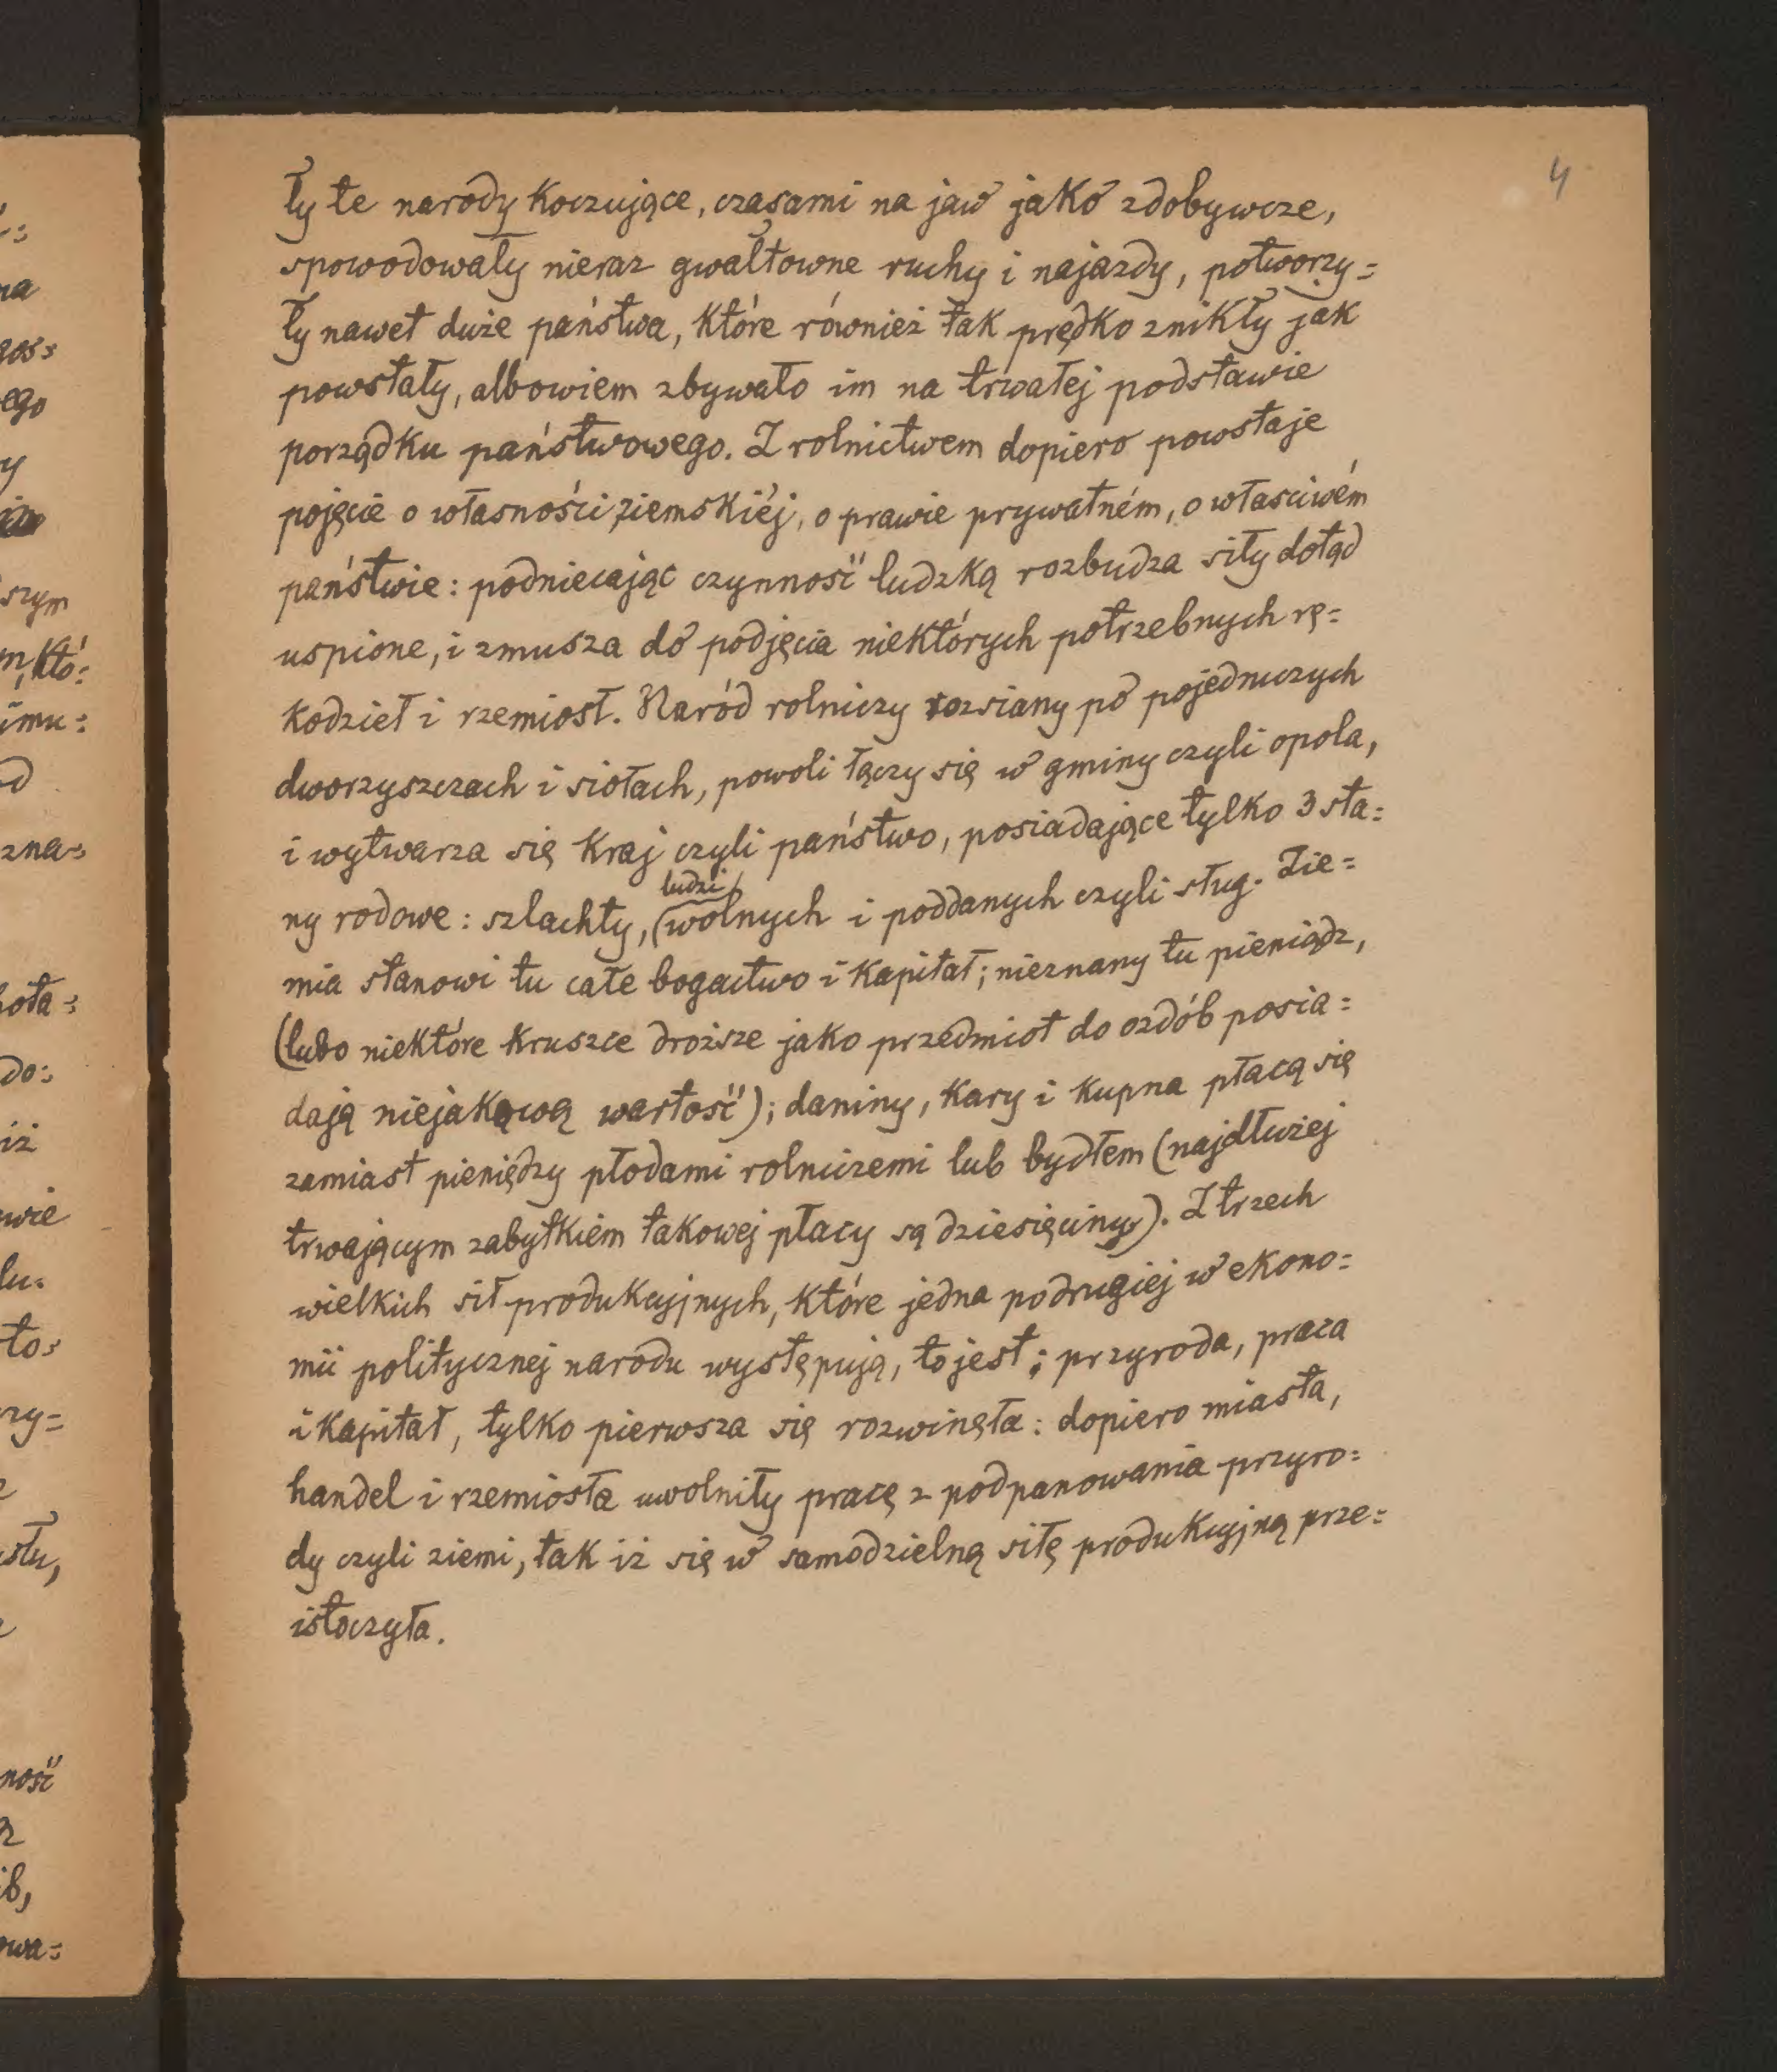 4
ły te narody koczujące, czasami na jaw jako zdobywcze,
spowodowały nieraz gwałtowne ruchy i najazdy, potworzy=
ły nawet duże państwa, które również tak prędko znikły jak
powstały, albowiem zbywało im na trwałej podstawie
porządku państwowego. Z rolnictwem dopiero powstaje
pojęcie o własności ziemskiéj, o prawie prywatném, o własciwém
państwie: podniecając czynność ludzką rozbudza siły dotąd
uspione, i zmusza do podjęcia niektórych potrzebnych rę=
kodzieł i rzemiosł. Naród rolniczy rozsiany po pojedńczych
dworzyszczach i siołach, powoli łączy się w gminy czyli opola,
i wytwarza się kraj czyli państwo, posiadające tylko 3 sta=
ludzi
ny rodowe: szlachty, (wolnych i poddanych czyli sług. Zie=
mia stanowi tu całe bogactwo i kapitał; nieznany tu pieniądz,
(lubo niektóre kruszce droższe jako przedmiot do ozdób posia=
dają niejakową wartość); daniny, kary i kupna płacą się
zamiast pieniędzy płodami rolniczemi lub bydłem (najdłużej
trwającym zabytkiem takowej płacy są dziesięciny). Z trzech
wielkich sił produkcyjnych, które jedna podrugiej w ekono=
mii politycznej narodu występują, to jest: przyroda, praca
i kapitał, tylko pierwsza się rozwinęła: dopiero miasta,
handel i rzemiosła uwolniły pracę z podpanowania przyro=
dy czyli ziemi, tak iż się w samodzielną siłę produkcyjną prze=
istoczyła.